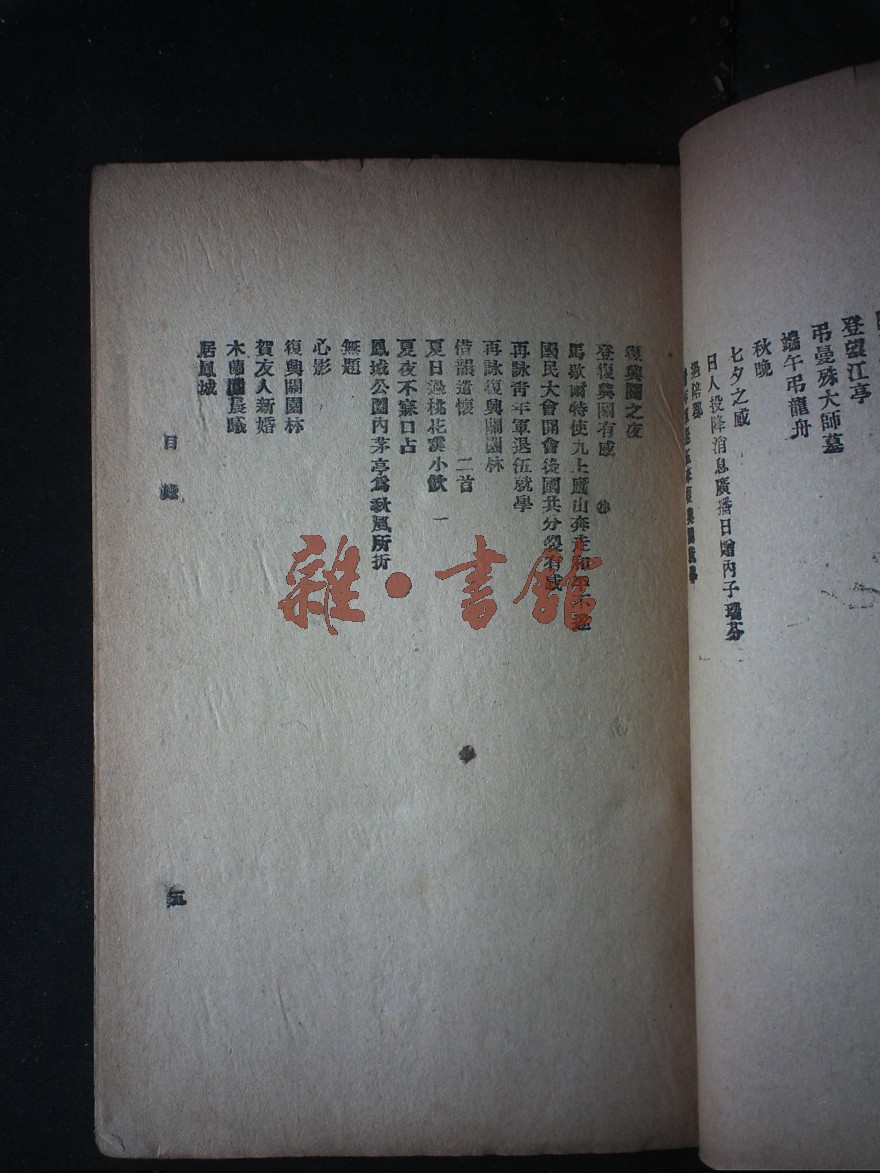 登望江亭
弔曼殊大師墓
端午弔龍舟
秋晚
七夕之感
日人投降消息廣播日贈內子瑞芬
過涪郡
復興關之夜
登復興關有感
馬歇爾特使九上廬山奔走和
國民大會開會後國共分裂有感
再詠青年軍退伍就學
再詠復興關園林
借韻遣懷 二首
夏日過桃花溪小飲 一
夏夜不寐口占
鳳城公園內茅亭為秋風所折
無題
心影
復興關園林
賀友人新婚
木蘭園晨曦
居鳳城
目錄
五
雜·書館